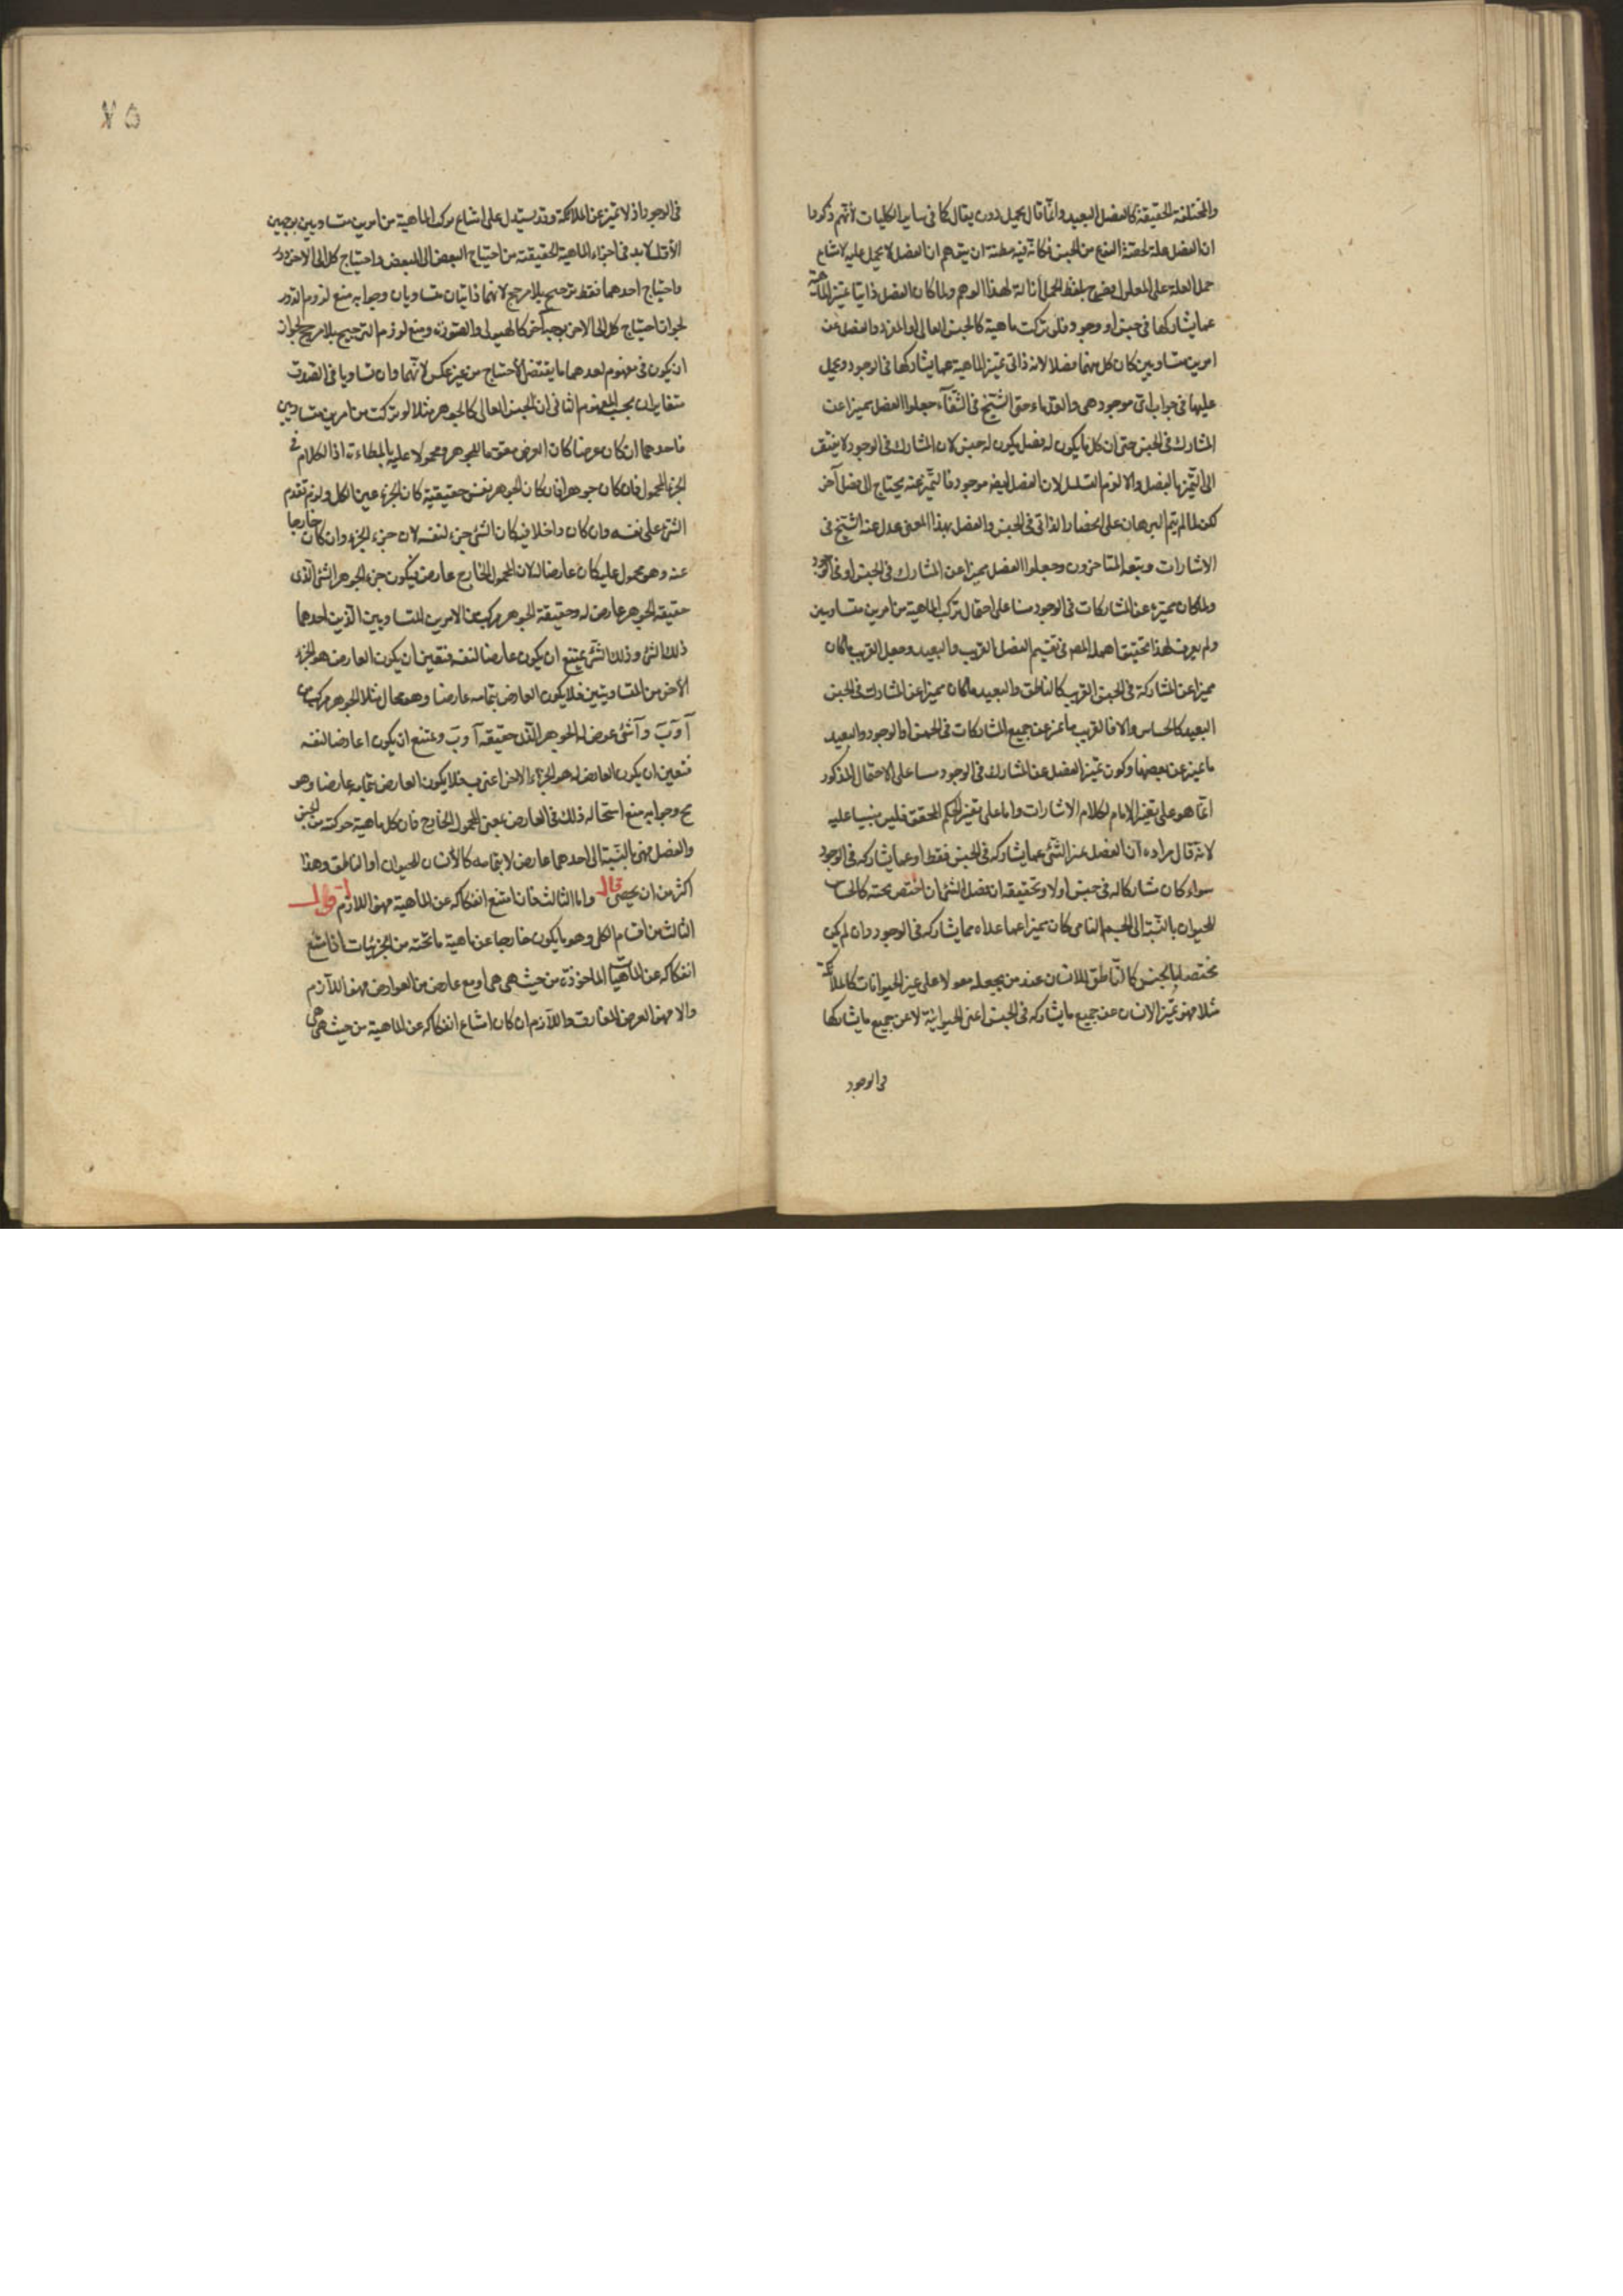 والمختلفة الحقيقة كالفصل البعيد وانما قال يحمل دون يقال كما في ساير الكليات لانهم ذكروا
ان الفصل علة لحصة النوع من الجنس فكانه فيه مظنة ان يتوهم ان الفصل لا يحمل عليه لامتناع
حمل العلة على المعلول فصرح بلفظ الحمل ازالة لهذا الوهم ولما كان الفصل ذاتيا يميز الماهية
عما يشاركها في جنس او وجود فلو تركبت ماهية كالجنس العالي او المفرد والفصل من
امرين متساويين كان كل منهما فصلا لانه ذاتي يميز الماهية عما يشاركها في الوجود ويحمل
عليها في جواب اي موجود هي والقدماء حتى الشيخ في الشفآء جعلوا الفصل مميزا عن
المشارك في الجنس حتى ان كل ما يكون له فصل يكون له جنس لان المشارك في الوجود لا يفتقر
الى التميز بالفصل والا لزم التسلسل لان الفصل ايضا موجود فالتميز عنه يحتاج الى فصل آخر
لكن لما لم يتم البرهان على انحصار الذاتي في الجنس والفصل بهذا المعنى عدل عنه الشيخ في
الاشارات وتبعه المتاخرون وجعلوا الفصل مميزا عن المشارك في الجنس او في الوجود
ولما كان تميزه عن المشاركات في الوجود مبنيا على احتمال تركب الماهية من امرين متساويين
ولم يعرف لهذا تحقيق اهمله المصنف في تقسيم الفصل القريب والبعيد وجعل القريب ما كان
مميزا عن المشاركة في الجنس القريب كالناطق والبعيد ما كان مميزا عن المشارك في الجنس
البعيد كالحساس والا فالقريب ما تميز عن جميع المشاركات في الجنس او الوجود والبعيد
ما تميز عن بعضها وكون تميز الفصل عن المشارك في الوجود مبنيا على الاحتمال المذكور
انما هو على تفسير الامام لكلام الاشارات واما على تفسير الحكيم المحقق فليس مبنيا عليه
لانه قال مراده ان الفصل يميز الشئ عما يشاركه في الجنس فقط او عما يشاركه في الوجود
سواء كان مشاركا له في جنس اولا وتحقيقه ان فصل الشئ ان اختص بجنسه كالحساس
للحيوان بالنسبة الى الجسم النامي كان مميزا عما عداه مما يشاركه في الوجود وان لم يكن
مختصا بالجنس كالناطق للانسان عند من يجعله مقولا على غير الحيوانات كالملائكة
مثلا فهو يميز الانسان عن جميع ما يشاركه في الجنس اعني الحيوانية لا عن جميع ما يشاركها
في الوجود
٧٥
في الوجود اذ لا تميز عن الملائكة وقد يستدل على امتناع تركب الماهية من امرين متساويين بوجهين
الاول لا بد في اجزاء الماهية الحقيقية من احتياج البعض الى البعض واحتياج كل الى الاخر دور
واحتياج احدهما فقط ترجيح بلا مرجح لانهما ذاتيان متساويان وجوابه منع لزوم الدور
لجواز احتياج كل الى الاخر بوجه آخر كالهيولى والصورة ومنع لزوم الترجيح بلا مرجح لجواز
ان يكون في مفهوم احدهما ما يقتضي الاحتياج من غير عكس لانهما وان تساويا في الصدق
متغايران بحسب المفهوم الثاني ان الجنس العالي كالجوهر مثلا لو تركبت من امرين متساويين
فاحدهما ان كان عرضا كان العرض مقوما للجوهر ومحمولا عليه بالمواطاءة اذ الكلام في
الجزء المحمول فان كان جوهرا فان كان الجوهر نفس حقيقته كان الجزء عين الكل ولزم تقدم
الشئ على نفسه وان كان داخلا فيه كان الشئ جزء لنفسه لان جزء الجزء وان كان خارجا
عنه وهو محمول عليه كان عارضا له لان المحمول الخارج عارض فيكون جزء الجوهر الشئ الذي
حقيقة الجوهر عارض له وحقيقة الجوهر مركب من الامرين المتساويين الذين احدهما
ذلك الشئ وذلك الشئ يمتنع ان يكون عارضا لنفسه فتعين ان يكون العارض هو الجزء
الاخر من المتساويين فلا يكون العارض بتمامه عارضا وهو محال مثلا الجوهر مركب من
آ و ب وآ شئ عرض له الجوهر الذي حقيقته آ و ب ويمتنع ان يكون ا عارضا لنفسه
فتعين ان يكون العارض له هو الجزء الاخر اعني ب فلا يكون العارض بتمامه عارضا وهو
مح وجوابه منع استحالة ذلك في العارض بمعنى المحمول الخارج فان كل ماهية مركبة من الجنس
والفصل فهي بالنسبة الى احدهما عارض لا بتمامه كالانسان للحيوان او الناطق وهذا
اكثر من ان يحصى قال واما الثالث فان امتنع انفكاكه عن الماهية فهو اللازم اقول
الثالث من اقسام الكلي وهو ما يكون خارجا عن ماهية ما تحته من الجزئيات ان امتنع
انفكاكه عن الماهيات الماخوذة من حيث هي هي او مع عارض من العوارض فهو اللازم
والا فهو العرض المفارق واللازم ان كان امتناع انفكاكه عن الماهية من حيث هي هي